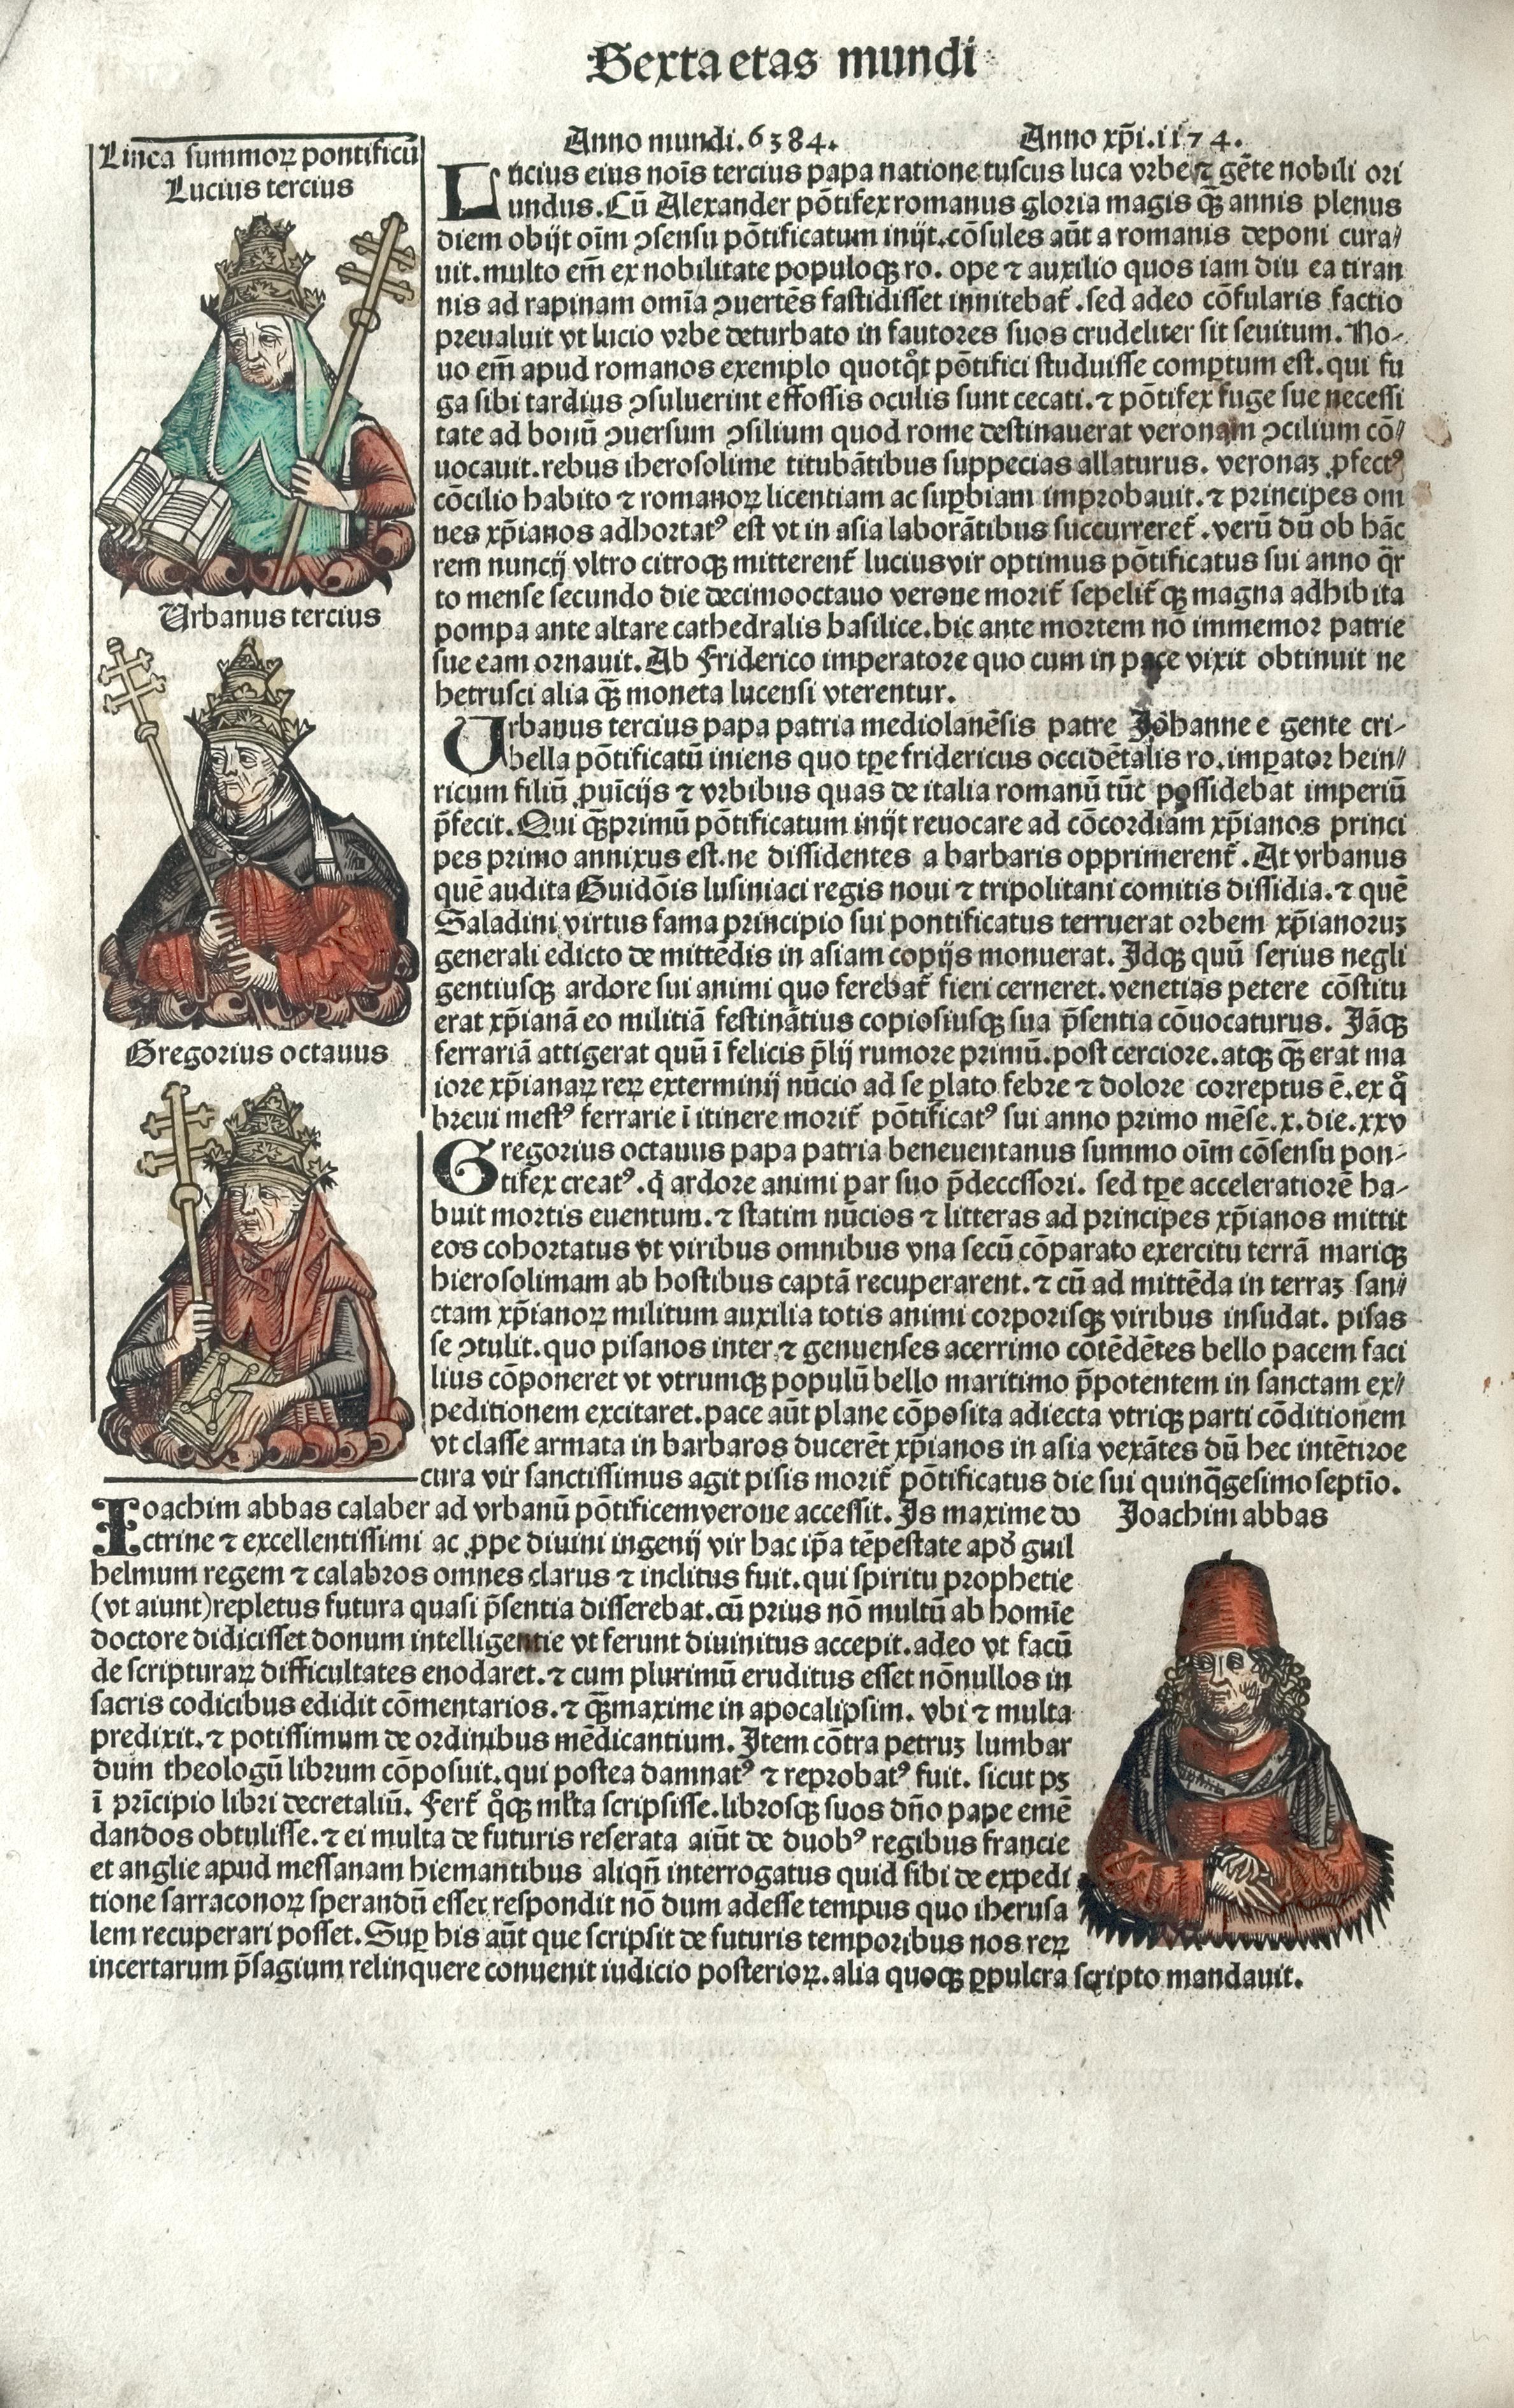 Sexta etas mundi
Linea summoꝝ pontificũ
Lucius tercius
Urbanus tercius
Gregorius octauus
Anno mundi.6384. Anno xp̃i.1174.
Lucius eius noĩs tercius papa natione tuscus luca vrbe ⁊ gẽte nobili ori
undus. Cũ Alexander põtifex romanus gloria magis qꝫ̃ annis plenus
diem obijt oĩm ꝯsensu põtificatum inijt. cõsules aũt a romanis deponi cura⸗
uit. multo em̃ ex nobilitate populoqꝫ ro. ope ⁊ auxilio quos iam diu ea tiran
nis ad rapinam omĩa ꝯuertẽs fastidisset innitebat̃. sed adeo cõsularis factio
preualuit vt lucio vrbe deturbato in fautores suos crudeliter sit seuitum. No⸗
uo em̃ apud romanos exemplo quotqͦt põtifici studuisse comptum est. qui fu
ga sibi tardius ꝯsuluerint effossis oculis sunt cecati. ⁊ põtifex fuge sue necessi
tate ad bonũ ꝯuersum ꝯsilium quod rome destinauerat veronam ꝯcilium cõ⸗
uocauit. rebus iherosolime titubãtibus suppecias allaturus. veronaꝫ ꝓfectꝰ
cõcilio habito ⁊ romanoꝝ licentiam ac suꝑbiam improbauit. ⁊ principes om
nes xp̃ianos adhortatꝰ est vt in asia laborãtibus succurreret̃. verũ dũ ob hãc
rem nuncij vltro citroqꝫ mitterent̃ lucius vir optimus põtificatus sui anno q̃r
to mense secundo die decimooctauo verone morit̃ sepelit̃qꝫ magna adhibita
pompa ante altare cathedralis basilice. hic ante mortem nõ immemor patrie
sue eam ornauit. Ab Friderico imperatore quo cum in pace vixit obtinuit ne
hetrusci alia qꝫ̃ moneta lucensi vterentur.
Urbanus tercius papa patria mediolanẽsis patre Johanne e gente cri⸗
bella põtificatũ iniens quo tꝑe fridericus occidẽtalis ro. imꝑator hein⸗
ricum filiũ ꝓuĩcijs ⁊ vrbibus quas de italia romanũ tũc possidebat imperiũ
p̃fecit. Qui qꝫ̃primũ põtificatum inijt reuocare ad cõcordiam xp̃ianos princi
pes primo annixus est. ne dissidentes a barbaris opprimerent̃. At vrbanus
quẽ audita Guidõis lusiniaci regis noui ⁊ tripolitani comitis dissidia. ⁊ quẽ
Saladini virtus fama principio sui pontificatus terruerat orbem xp̃ianoruꝫ
generali edicto de mittẽdis in asiam copijs monuerat. Idqꝫ quũ serius negli
gentiusqꝫ ardore sui animi quo ferebat̃ fieri cerneret. venetias petere cõstitu
erat xp̃ianã eo militiã festinãtius copiosiusqꝫ sua p̃sentia cõuocaturus. Jãqꝫ
ferrariã attigerat quũ ĩfelicis p̃lij rumore primũ. post cerciore. atqꝫ qꝫ̃ erat ma
iore xp̃ianaꝝ reꝝ exterminij nũcio ad se ꝑlato febre ⁊ dolore correptus ẽ. ex qͦ
breui mestꝰ ferrarie ĩ itinere morit̃ põtificatꝰ sui anno primo mẽse.x.die.xxv
Gregorius octauus papa patria beneuentanus summo oĩm cõsensu pon⸗
tifex creatꝰ. q̃ ardore animi par suo p̃decessori. sed tꝑe acceleratiorẽ ha⸗
buit mortis euentum. ⁊ statim nũcios ⁊ litteras ad principes xp̃ianos mittit
eos cohortatus vt viribus omnibus vna secũ cõparato exercitu terrã mariqꝫ
hierosolimam ab hostibus captã recuperarent. ⁊ cũ ad mittẽda in terraꝫ san⸗
ctam xp̃ianoꝝ militum auxilia totis animi corporisqꝫ viribus insudat. pisas
se ꝯtulit. quo pisanos inter ⁊ genuenses acerrimo cõtẽdẽtes bello pacem faci
lius cõponeret vt vtrumqꝫ populũ bello maritimo p̃potentem in sanctam ex⸗
peditionem excitaret. pace aũt plane cõposita adiecta vtriqꝫ parti cõditionem
vt classe armata in barbaros ducerẽt xp̃ianos in asia vexãtes dũ hec intẽtiꝛoe
cura vir sanctissimus agit pisis morit̃ põtificatus die sui quinq̃gesimo septĩo.
Ioachim abbas calaber ad vrbanũ põtificem verone accessit. Is maxime do
ctrine ⁊ excellentissimi ac ꝓpe diuini ingenij vir hac ip̃a tẽpestate apđ guil
helmum regem ⁊ calabros omnes clarus ⁊ inclitus fuit. qui spiritu prophetie
(vt aiunt) repletus futura quasi p̃sentia disserebat. cũ prius nõ multũ ab homĩe
doctore didicisset donum intelligentie vt ferunt diuinitus accepit. adeo vt facũ
de scripturaꝝ difficultates enodaret. ⁊ cum plurimũ eruditus esset nõnullos in
sacris codicibus edidit cõmentarios. ⁊ qꝫ̃maxime in apocalipsim. vbi ⁊ multa
predixit. ⁊ potissimum de ordinibus mẽdicantium. Item cõtra petruꝫ lumbar
dum theologũ librum cõposuit. qui postea damnatꝰ ⁊ reprobatꝰ fuit. sicut pꝫ
ĩ prĩcipio libri decretaliũ. Fert̃ qͦqꝫ ml̃ta scripsisse. librosqꝫ suos dño pape emẽ
dandos obtulisse. ⁊ ei multa de futuris reserata aiũt de duobꝰ regibus francie
et anglie apud messanam hiemantibus aliqñ interrogatus quid sibi de expedi
tione sarraconoꝝ sperandũ esset respondit nõ dum adesse tempus quo iherusa
lem recuperari posset. Suꝑ his aũt que scripsit de futuris temporibus nos reꝝ
incertarum p̃sagium relinquere conuenit iudicio posterioꝝ. alia quoqꝫ ꝑpulcra scripto mandauit.
Joachim abbas